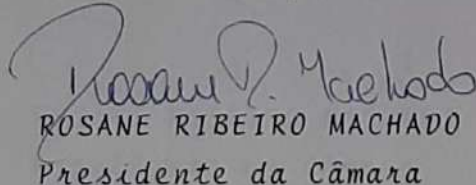 Rosane R. Machado
ROSANE RIBEIRO MACHADO
Presidente da Câmara